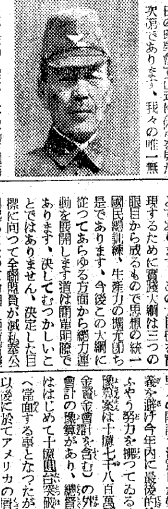 次第であります、我々の唯一無
理するために實踐大綱は三つの
眼目から成るもので思想の統一
國民訓練、生產力の擴充即ち
是であります、今後この大綱に
從つてあらゆる方面から總力運
動を展開します道は簡單明瞭で
あります、決してむつかしいこ
とではありません、決定した目
標に向つて全聯盟員が誠心奉公
後を游が今年内に最後的
ふやう努力を拂つてゐる
豫算案は十億七千八百萬
金資金會計を含む)の外
會計の豫算があり、總督
はじめて十億圓台突破
へ當面する事となつたが
以後に於てアメリカの